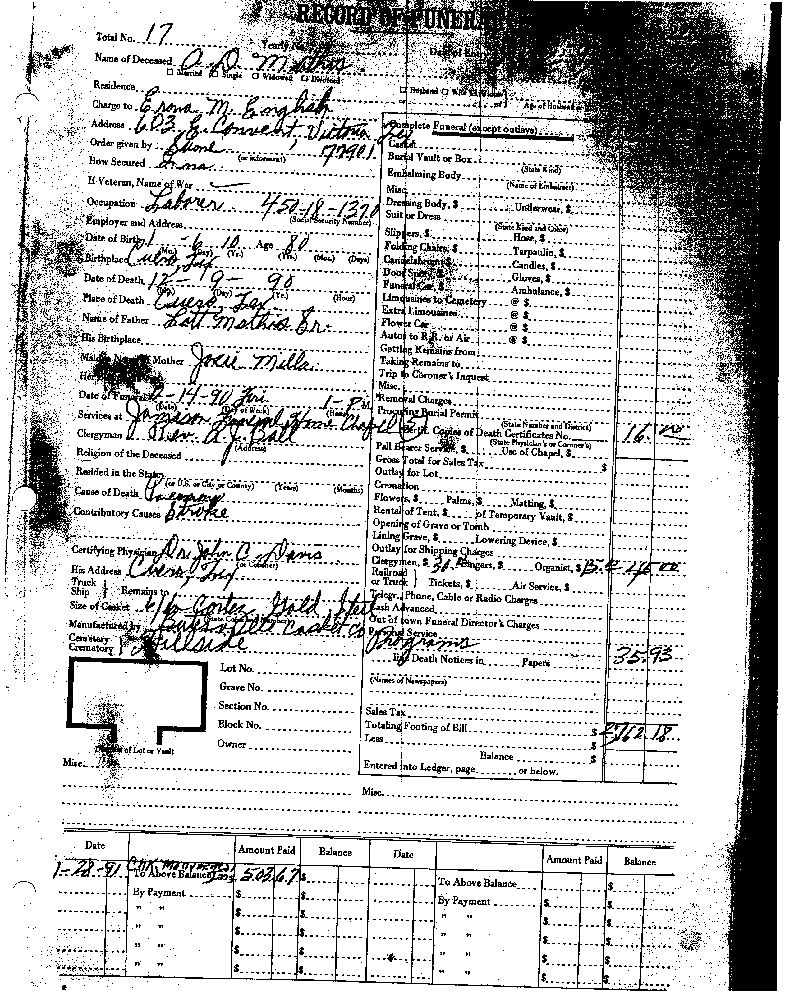 RECORD OF FUNERAL
Total No. 17 Yearly No.
Name of Deceased A. D. Mathis
☐ Married ☐ Single ☐ Widowed ☐ Divorced
Residence
☐ Husband ☐ Wife
Charge to Erona M. English
Address 603 E. Convent, Victoria Tex
77901
Order given by Same
(or informant)
How Secured
If Veteran, Name of War
Occupation Laborer 450-18-1370
(Social Security Number)
Employer and Address
Date of Birth 1 - 6 - 10 Age 80
(Mo.) (Day) (Yr.) (Yrs.) (Mos.) (Days)
Birthplace Cuero, Tex
Date of Death 12 - 9 - 90
(Mo.) (Day) (Yr.) (Hour)
Place of Death Cuero Tex
Name of Father Lott Mathis Sr.
His Birthplace
Maiden Name of Mother Josie Mills
Date of Funeral 12-14-90 Fri 1-P.M.
(Date) (Day of Week) (Hour)
Services at Jamison Funeral Home Chapel
Clergyman Rev. A. J. Ball
(Address)
Religion of the Deceased
Resided in the State
(or U.S. or City or County) (Years) (Months)
Cause of Death
Contributory Causes Stroke
Certifying Physician Dr. John C. Davis
(or Coroner)
His Address Cuero, Tex
Truck
Ship } Remains to
Size of Casket 6/6 Cortez Gold Steel
Manufactured by Casket Co
Cemetery
Crematory } Hillside
Lot No.
Grave No.
Section No.
Block No.
Owner
Diagram of Lot or Vault
Misc.
Complete Funeral (except outlays)
Casket
Burial Vault or Box
(State Kind)
Embalming Body
(Name of Embalmer)
Misc.
Dressing Body, $ Underwear, $
Suit or Dress
(State Kind and Color)
Slippers, $ Hose, $
Folding Chairs, $ Tarpaulin, $
Candelabrum, $ Candles, $
Door Spray, $ Gloves, $
Funeral Car, $ Ambulance, $
Limousines to Cemetery @ $
Extra Limousines @ $
Flower Car @ $
Autos to R.R. or Air @ $
Getting Remains from
Taking Remains to
Trip to Coroner's Inquest
Misc.
Removal Charges
Procuring Burial Permit
(State Number and District)
Certif. Copies of Death Certificates No. 16.00
(State Physician's or Coroner's)
Pall Bearer Service, $ Use of Chapel, $
Gross Total for Sales Tax $
Outlay for Lot
Cremation
Flowers, $ Palms, $ Matting, $
Rental of Tent, $ of Temporary Vault, $
Opening of Grave or Tomb
Lining Grave, $ Lowering Device, $
Outlay for Shipping Charges
Clergymen, $ 30.00 Singers, Organist, $ 15.00 45.00
Railroad
or Truck } Tickets, $ Air Service, $
Telegr., Phone, Cable or Radio Charges
Cash Advanced
Out of town Funeral Director's Charges
Personal Service
Programs
Death Notices in Papers 35.93
(Names of Newspapers)
Sales Tax
Totaling Footing of Bill $ 2762.18
Less $
Balance $
Entered into Ledger, page or below.
Misc.
Date Amount Paid Balance Date Amount Paid Balance
1-28-91 To Above Balance 503.67 $ To Above Balance $
By Payment $ $ By Payment $ $
" " $ $ " " $ $
" " $ $ " " $ $
" " $ $ " " $ $
" " $ $ " " $ $